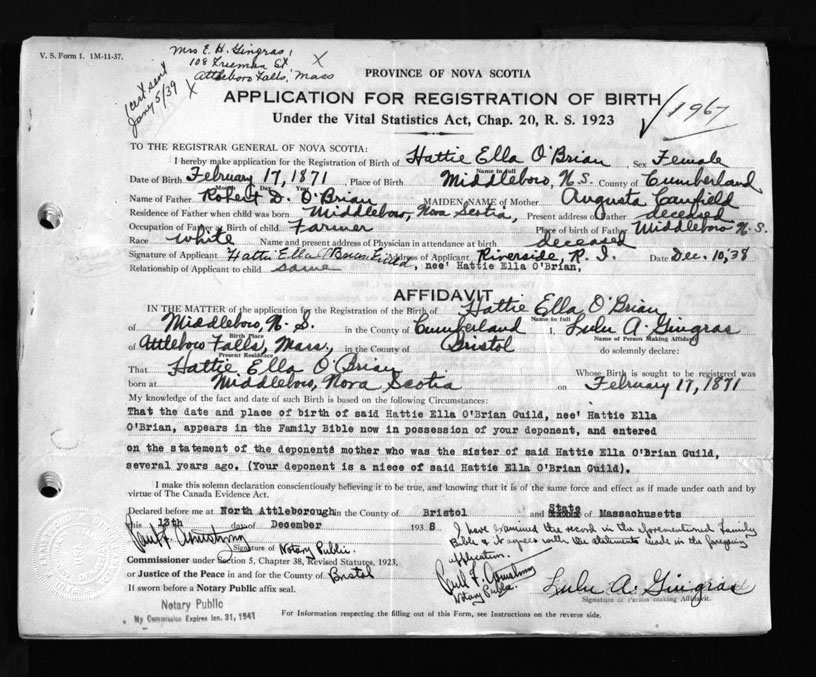 V. S. Form 1. 1M-11-37.
Mrs E. H. Gingras,
108 Freeman St X
Attleboro Falls, Mass
Cert sent
Jany 5/39 X
PROVINCE OF NOVA SCOTIA
APPLICATION FOR REGISTRATION OF BIRTH
1967
Under the Vital Statistics Act, Chap. 20, R. S. 1923
TO THE REGISTRAR GENERAL OF NOVA SCOTIA:
I hereby make application for the Registration of Birth of Hattie Ella O'Brian, Sex Female
Name in full
Date of Birth February 17, 1871, Place of Birth Middleboro, N.S. County of Cumberland
Month Day Year
Name of Father Robert D. O'Brian MAIDEN NAME of Mother Augusta Canfield
Residence of Father when child was born Middleboro, Nova Scotia, Present address of Father deceased
Occupation of Father at Birth of child Farmer Place of birth of Father Middleboro N.S.
Race White Name and present address of Physician in attendance at birth deceased
Signature of Applicant Hattie Ella O'Brian Guild, Address of Applicant Riverside, R. I. Date Dec. 10, '38
Relationship of Applicant to child same, nee' Hattie Ella O'Brian,
AFFIDAVIT
IN THE MATTER of the application for the Registration of the Birth of Hattie Ella O'Brian
Name in full
of Middleboro, N. S. in the County of Cumberland I, Lulu A. Gingras
Birth Place
Name of Person Making Affidavit
of Attleboro Falls, Mass., in the County of Bristol do solemnly declare:
Present Residence
That Hattie Ella O'Brian Whose Birth is sought to be registered was
born at Middleboro, Nova Scotia on February 17, 1871
My knowledge of the fact and date of such Birth is based on the following Circumstances:
That the date and place of birth of said Hattie Ella O'Brian Guild, nee' Hattie Ella
O'Brian, appears in the Family Bible now in possession of your deponent, and entered
on the statement of the deponents mother who was the sister of said Hattie Ella O'Brian Guild,
several years ago. (Your deponent is a niece of said Hattie Ella O'Brian Guild).
I make this solemn declaration conscientiously believing it to be true, and knowing that it is of the same force and effect as if made under oath and by
virtue of The Canada Evidence Act.
Declared before me at North Attleborough in the County of Bristol and State of Massachusetts
this 13th day of December 1938
I have examined the record in the aforementioned Family
Bible & it agrees with the statements made in the foregoing
application.
Paul F. Armstrong
Signature of Notary Public.
Commissioner under Section 5, Chapter 38, Revised Statutes, 1923,
or Justice of the Peace in and for the County of Bristol
Paul F. Armstrong
Notary Public.
Lulu A. Gingras
Signature of Person making Affidavit.
If sworn before a Notary Public affix seal.
Notary Public
My Commission Expires Jan. 31, 1941
For Information respecting the filling out of this Form, see Instructions on the reverse side.